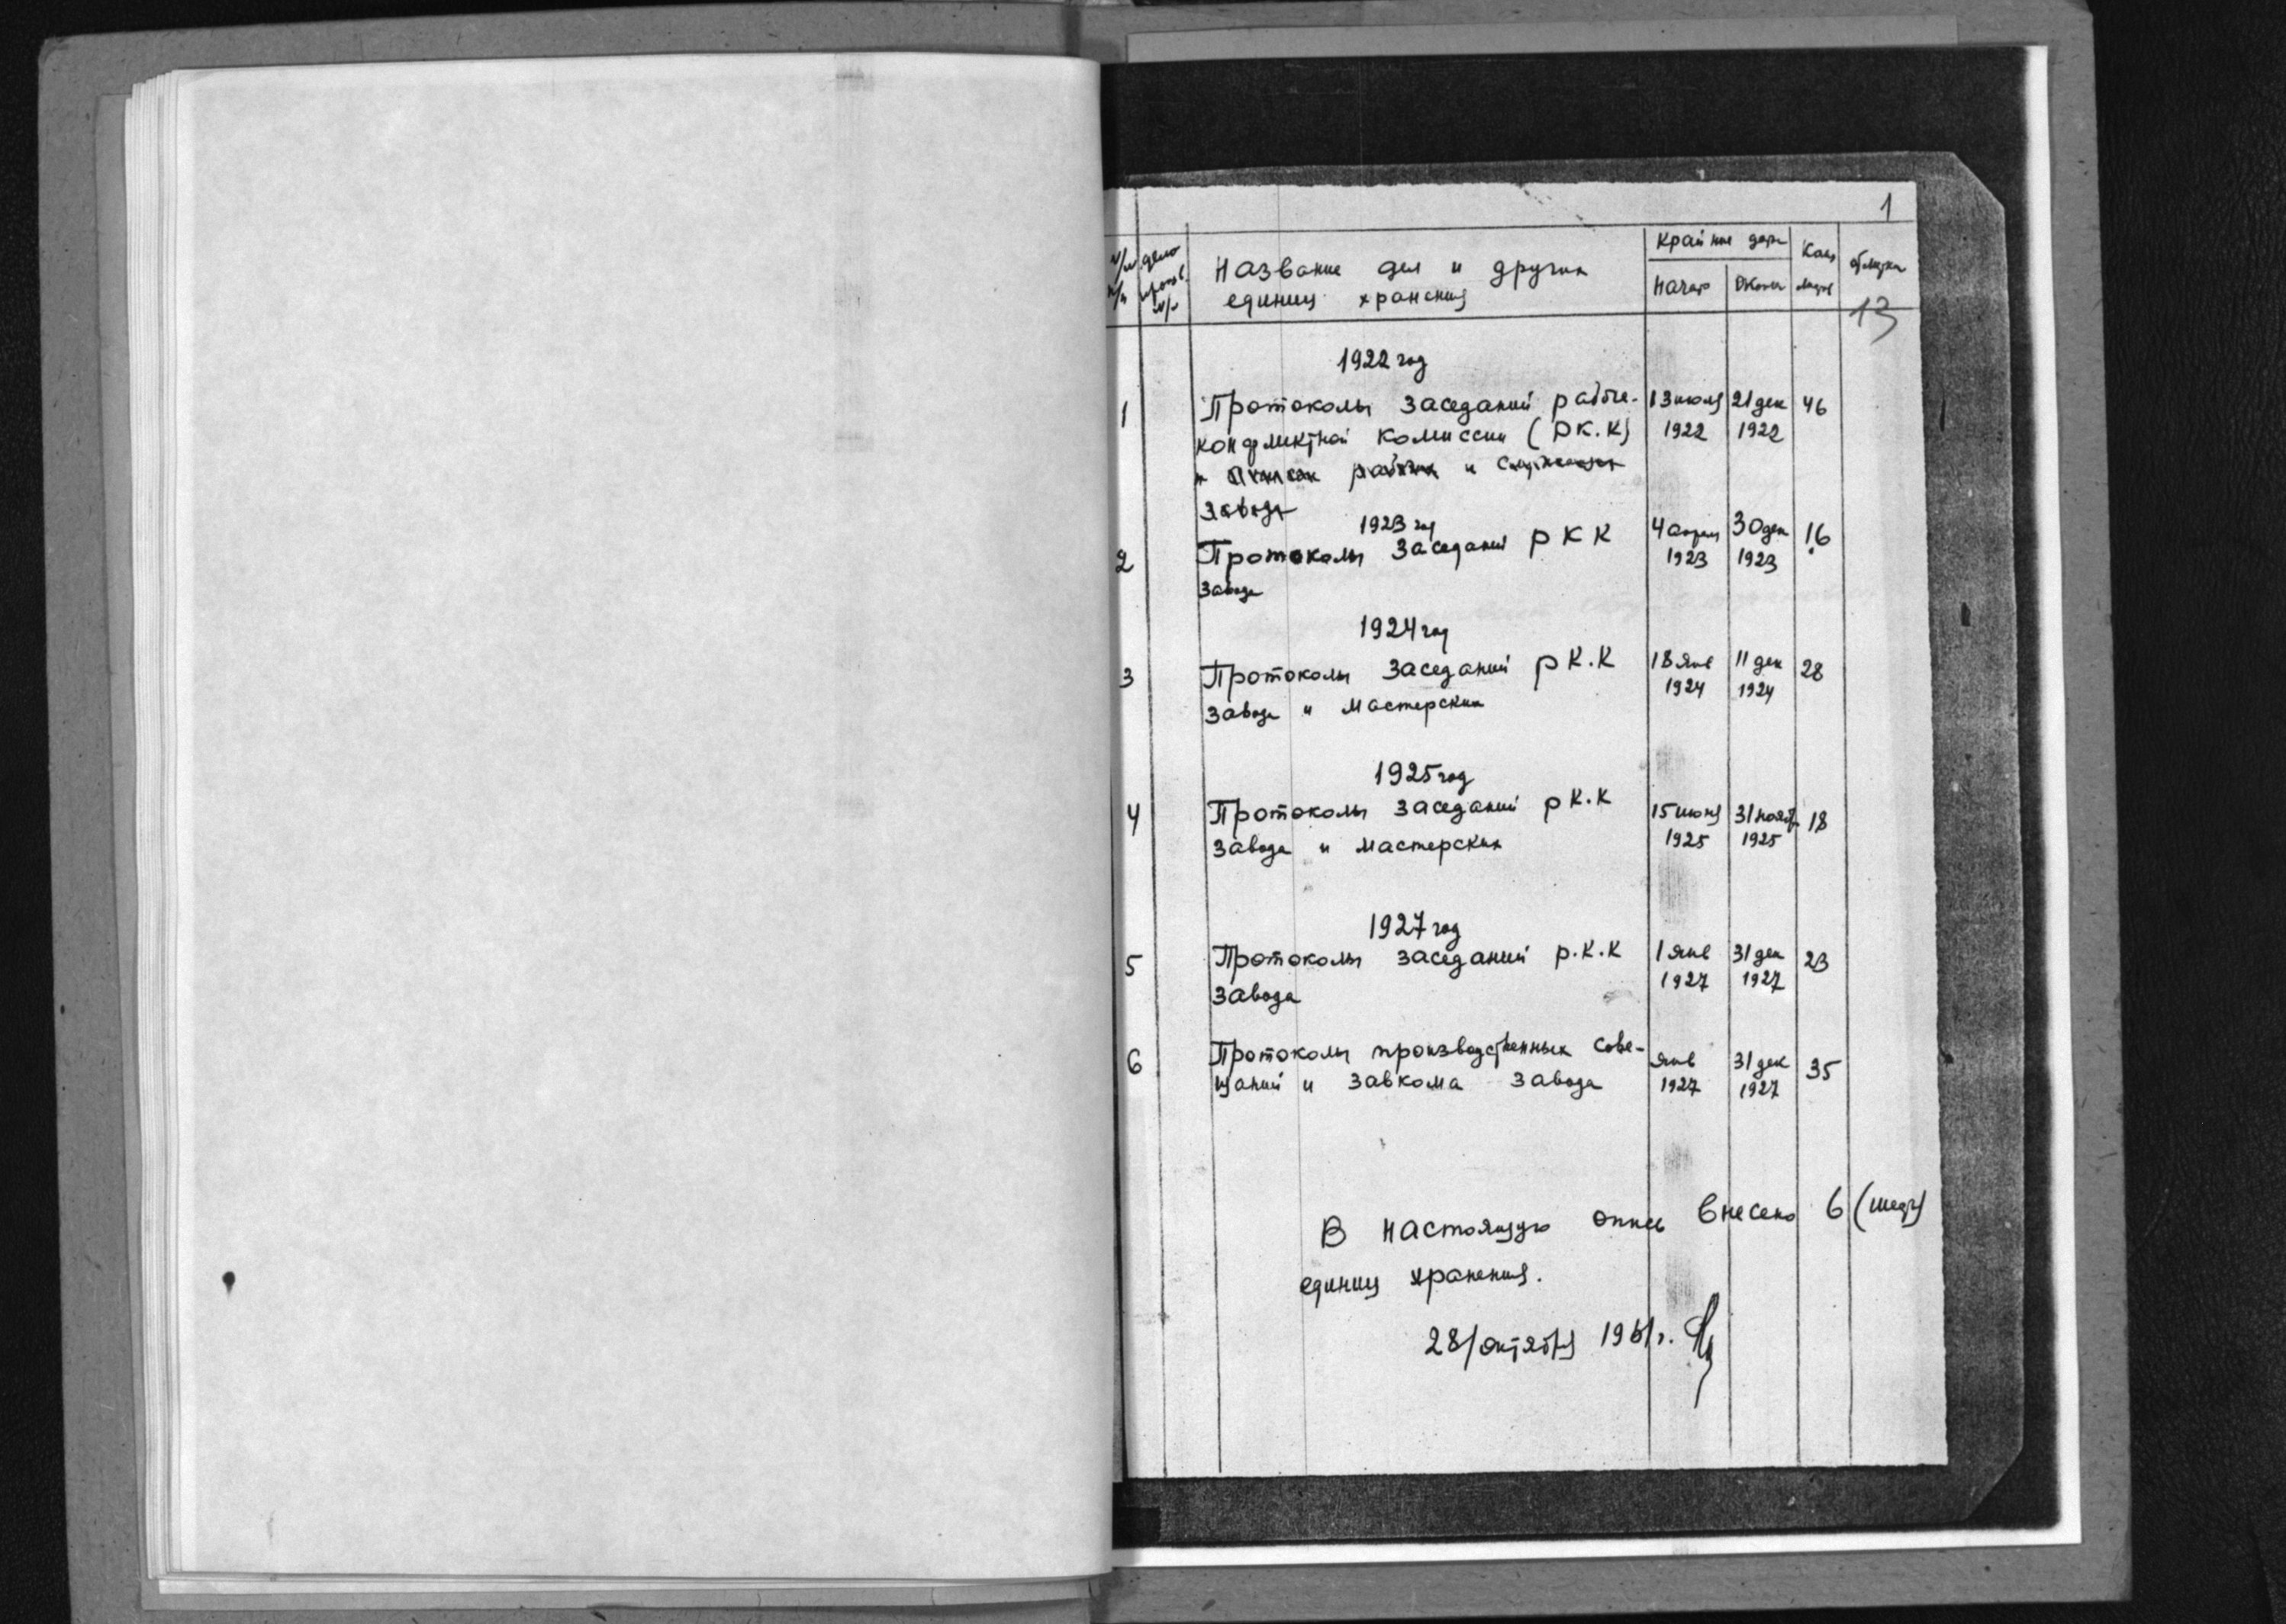 1
№/№ п/п
дело
Название дел и других
единиц хранения
Крайние даты
Начар
Оконч
Кол
листов
13
1922 год
1
Протоколы заседаний рабоче-
конфликтной комиссии (РК.К)
и списки рабочих и служащих
завода
13 июля 1922
21 дек 1922
46
1923 год
2
Протоколы заседаний РКК
завода
4 апрел 1923
30 дек 1923
16
1924 год
3
Протоколы заседаний РК.К
завода и мастерских
18 янв 1924
11 дек 1924
28
1925 год
4
Протоколы заседаний РК.К
завода и мастерских
15 июня 1925
31 нояб 1925
18
1927 год
5
Протоколы заседаний Р.К.К
завода
1 янв 1927
31 дек 1927
23
6
Протоколы производственных сове-
щаний и завкома завода
янв 1927
31 дек 1927
35
В настоящую опись внесено 6 (шесть)
единиц хранения.
28/октября 1961 г.